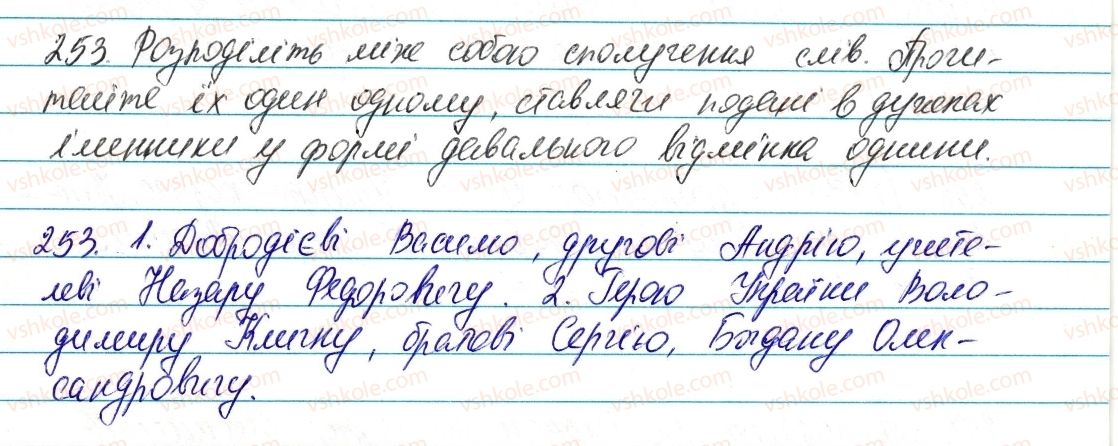 253. Розподіліть між собою сполучення слів. Прочи-
тайте їх один одному, ставлячи подані в дужках
іменники у формі давального відмінка однини.
253. 1. Добродієві Василю, другові Андрію, учите-
леві Назару Федоровичу. 2. Герою України Воло-
димиру Кличку, братові Сергію, Богдану Олек-
сандровичу.